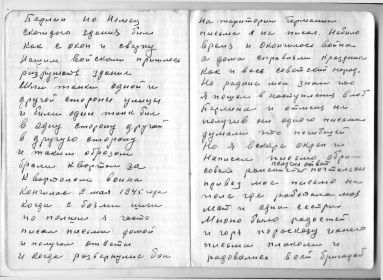 Берлин но Немец
с каждого здания бил
как с окон и сверху
Нашим войскам пришлось
разрушать здание
Шли танки одной и
другой стороны улицы
и били один танк бил
в одну сторону другой
в другую сторону
и таким образом
брали квартал за
кварталом война
кончилась 9 мая 1945 года
когда с боями шли
по полям я часто
писал письма домой
и получал ответы
И когда развернулись бои
На територии Германии
письма я не писал. Небыло
время и окончилось война
а дома справляли праздник
как и весь советский народ.
Но родние мои знали что
Я пошел в наступление в/об
Берлина и от меня не
получив ни одного письма
думали что погибший
Но Я вскоре
написал письмо
получ ответ
почтальон
привез мое письмо на
поле где работала моя
мать и одна сестра
Много было радостей
и горя
письма плакали и
радовались всей бригадой